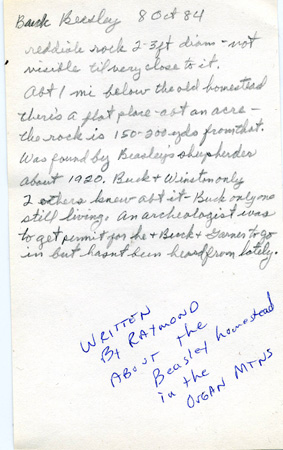 Buck Beasley 8 Oct 84
reddish rock 2-3ft diam - not
visible til very close to it.
Abt 1 mi below the old homestead
there's a flat place - abt an acre -
the rock is 150-200 yds from that.
Was found by Beasley's shepherder
about 1920. Buck & Winston only
2 others knew abt it - Buck only one
still living. An archeologist was
to get permit for he & Buck & Garner to go
in but hasnt been heard from lately.
WRITTEN
BY RAYMOND
ABOUT the
Beasley homestead
in the
ORGAN MTNS